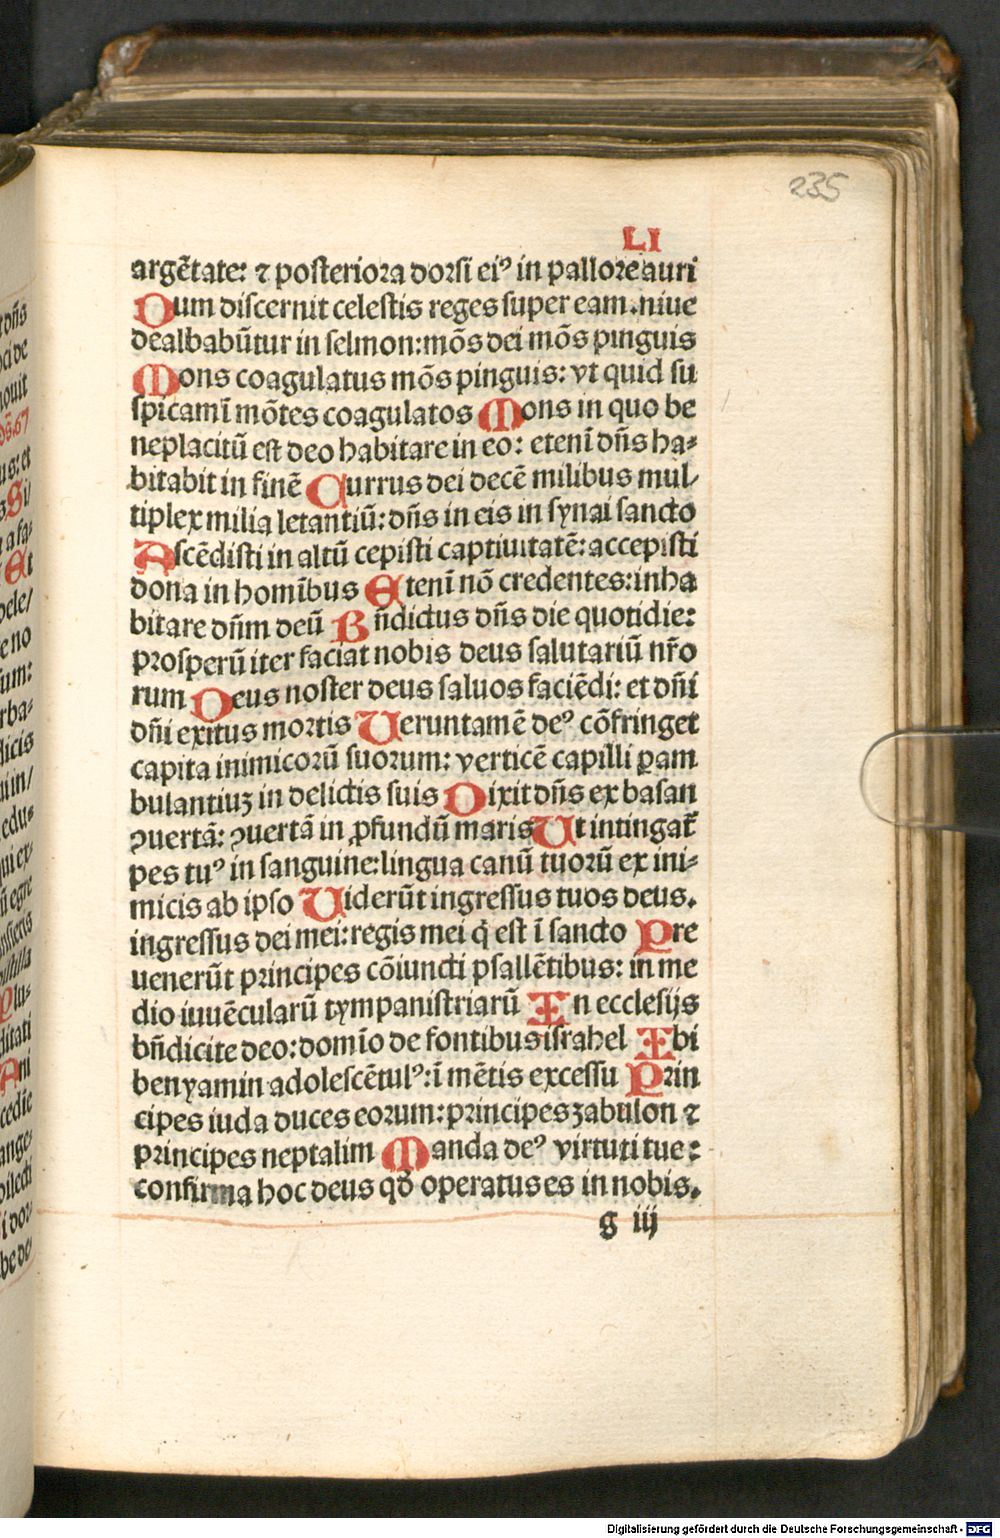 235
LI
argētate: ⁊ posteriora dorsi eiꝰ in pallore auri
Dum discernit celestis reges super eam. niue
dealbabūtur in selmon: mōs dei mōs pinguis
Mons coagulatus mōs pinguis: vt quid su
spicamī mōtes coagulatos Mons in quo be
neplacitū est deo habitare in eo: etenī dn̄s ha⸗
bitabit in finē Currus dei decē milibus mul⸗
tiplex milia letantiū: dn̄s in eis in synai sancto
Ascēdisti in altū cepisti captiuitatē: accepisti
dona in homībus Etenī nō credentes: inha
bitare dn̄m deū Bn̄dictus dn̄s die quotidie:
prosperū iter faciat nobis deus salutariū nr̄o
rum Deus noster deus saluos faciēdi: et dn̄i
dn̄i exitus mortis Ueruntamē deꝰ cōfringet
capita inimicorū suorum: verticē capilli ꝑam
bulantiuꝫ in delictis suis Dixit dn̄s ex basan
ꝯuertā: ꝯuertā in ꝓfundū maris Ut intingat᷑
pes tuꝰ in sanguine: lingua canū tuorū ex ini⸗
micis ab ipso Uiderūt ingressus tuos deus.
ingressus dei mei: regis mei q̄ est ī sancto Pre
uenerūt principes cōiuncti psallētibus: in me
dio iuuēcularū tympanistriarū In ecclesijs
bn̄dicite deo: domīo de fontibus israhel Ibi
benyamin adolescētulꝰ: ī mētis excessu Prin
cipes iuda duces eorum: principes zabulon ⁊
principes neptalim Manda deꝰ virtuti tue:
confirma hoc deus qd̄ operatus es in nobis.
g iij
Digitalisierung gefördert durch die Deutsche Forschungsgemeinschaft - DFG